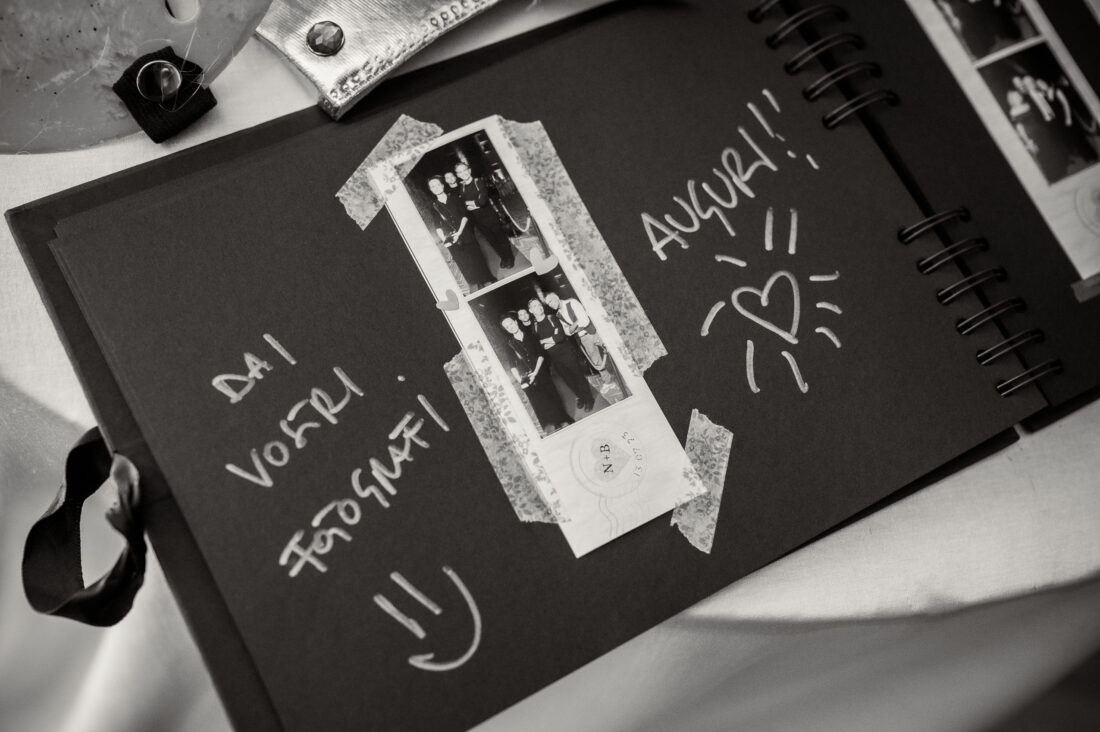 DAI
VOSTRI
FOTOGRAFI
N+B
13 07 25
AUGURI!!